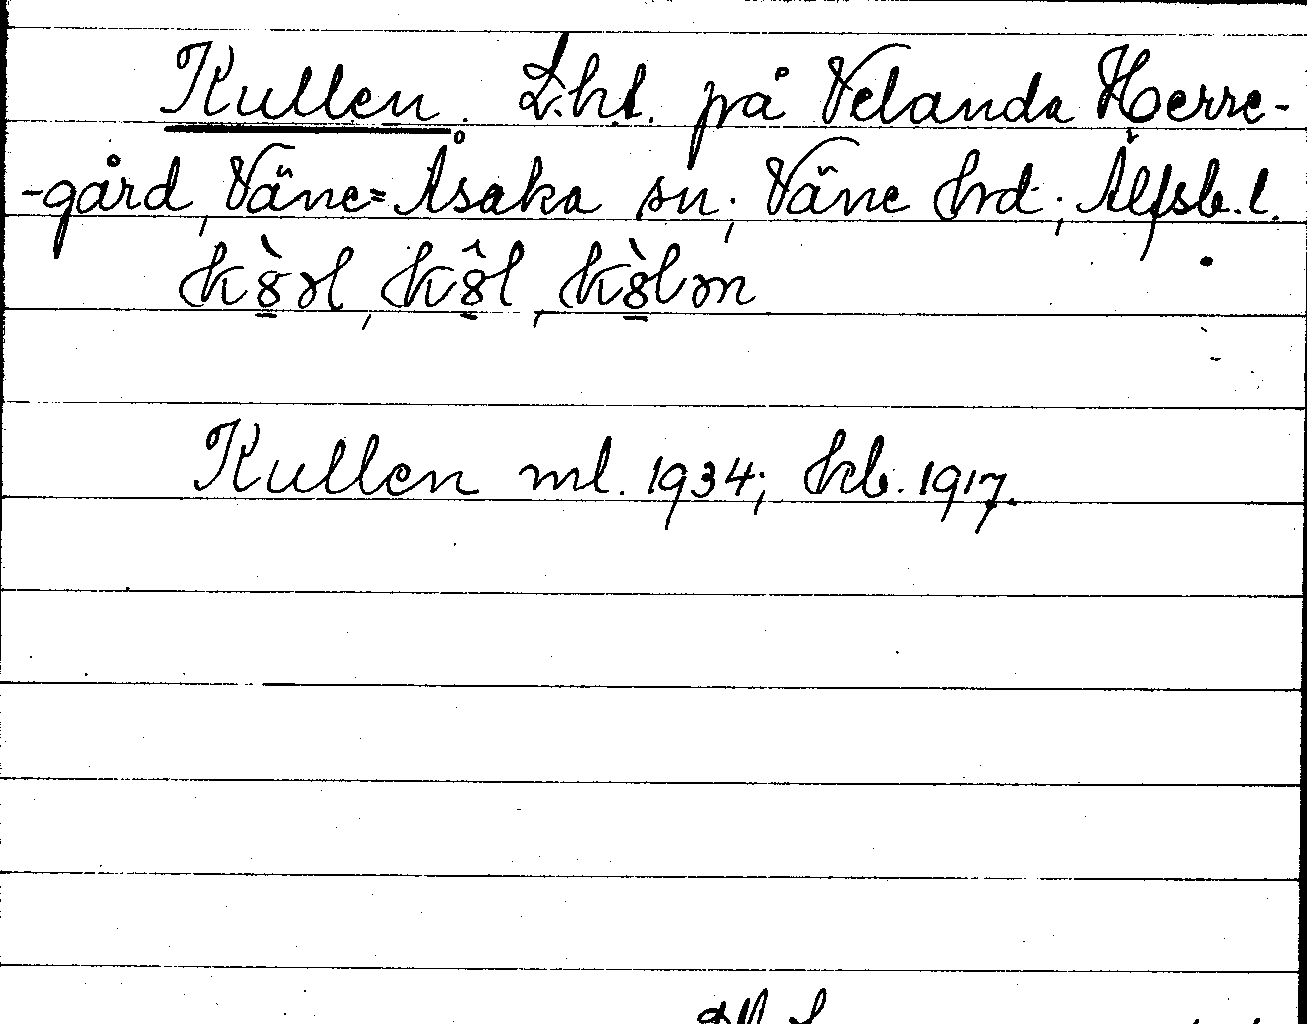 Kullen. Lht. på Velanda Herre-
-gård, Väne=Åsaka sn; Väne hrd; Älfsb. l.
Kullen ml. 1934; kb. 1917.